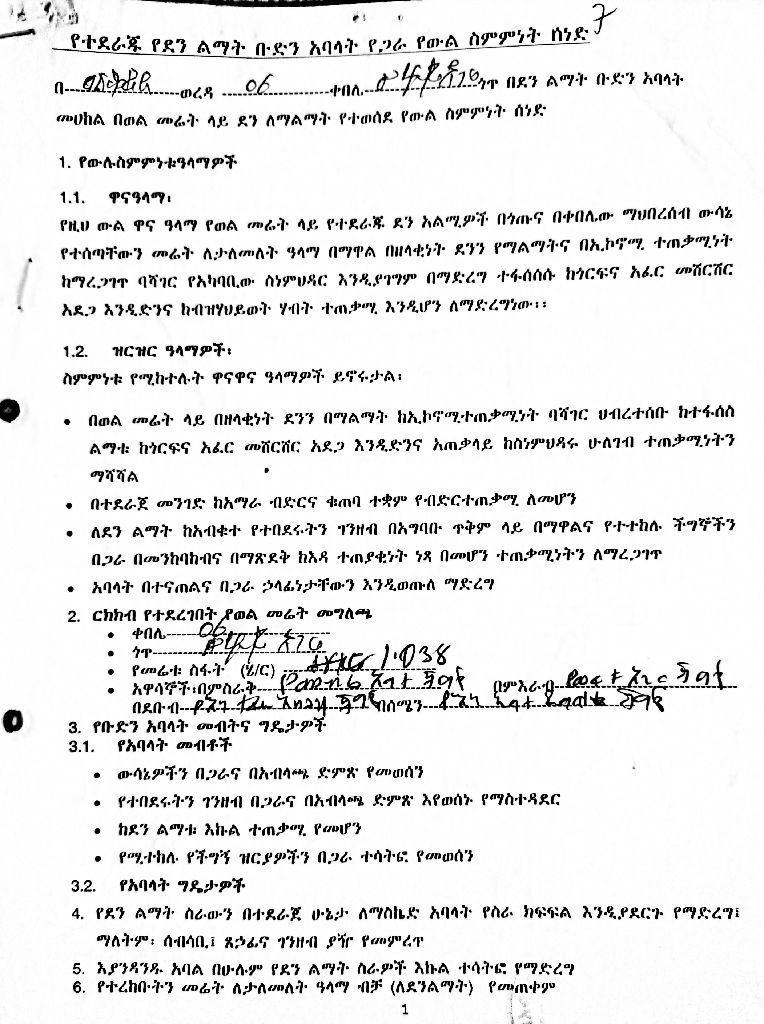 የተደራጁ የደን ልማት ቡድን አባላት የጋራ የውል ስምምነት ሰነድ 7
በ ወረዳ 06 ቀበሌ ጎጥ በደን ልማት ቡድን አባላት
መሀከል በወል መሬት ላይ ደን ለማልማት የተወሰደ የውል ስምምነት ሰነድ
1. የውሉስምምነቱዓላማዎች
1.1. ዋናዓላማ፡
የዚህ ውል ዋና ዓላማ የወል መሬት ላይ የተደራጁ ደን አልሚዎች በጎጡና በቀበሌው ማህበረሰብ ውሳኔ
የተሰጣቸውን መሬት ለታለመለት ዓላማ በማዋል በዘላቂነት ደንን የማልማትና በኢኮኖሚ ተጠቃሚነት
ከማረጋገጥ ባሻገር የአካባቢው ስነምህዳር እንዲያገግም በማድረግ ተፋሰሱ ከጎርፍና አፈር መሸርሸር
አደጋ እንዲድንና ከብዝሃህይወት ሃብት ተጠቃሚ እንዲሆን ለማድረግነው፡፡
1.2. ዝርዝር ዓላማዎች፡
ስምምነቱ የሚከተሉት ዋናዋና ዓላማዎች ይኖሩታል፡
• በወል መሬት ላይ በዘላቂነት ደንን በማልማት ከኢኮኖሚተጠቃሚነት ባሻገር ህብረተሰቡ ከተፋሰስ
ልማቱ ከጎርፍና አፈር መሸርሸር አደጋ እንዲድንና አጠቃላይ ከስነምህዳሩ ሁለገብ ተጠቃሚነትን
ማሻሻል
• በተደራጀ መንገድ ከአማራ ብድርና ቁጠባ ተቋም የብድርተጠቃሚ ለመሆን
• ለደን ልማት ከአብቁተ የተበደሩትን ገንዘብ በአግባቡ ጥቅም ላይ በማዋልና የተተከሉ ችግኞችን
በጋራ በመንከባከብና በማጽደቅ ከእዳ ተጠያቂነት ነጻ በመሆን ተጠቃሚነትን ለማረጋገጥ
• አባላት በተናጠልና በጋራ ኃላፊነታቸውን እንዲወጡለ ማድረግ
2. ርክክብ የተደረገበት የወል መሬት መግለጫ
• ቀበሌ 06
• ጎጥ
• የመሬቱ ስፋት (ሄ/ር) 1.038
• አዋሳኞች፡በምስራቅ በምእራብ
በደቡብ በሰሜን
3. የቡድን አባላት መብትና ግዴታዎች
3.1. የአባላት መብቶች
• ውሳኔዎችን በጋራና በአብላጫ ድምጽ የመወሰን
• የተበደሩትን ገንዘብ በጋራና በአብላጫ ድምጽ እየወሰኑ የማስተዳደር
• ከደን ልማቱ እኩል ተጠቃሚ የመሆን
• የሚተከሉ የችግኝ ዝርያዎችን በጋራ ተሳትፎ የመወሰን
3.2. የአባላት ግዴታዎች
4. የደን ልማት ስራውን በተደራጀ ሁኔታ ለማስኬድ አባላት የስራ ክፍፍል እንዲያደርጉ የማድረግ፤
ማለትም፡ ሰብሳቢ፤ ጸኃፊና ገንዘብ ያዥ የመምረጥ
5. እያንዳንዱ አባል በሁሉም የደን ልማት ስራዎች እኩል ተሳትፎ የማድረግ
6. የተረከቡትን መሬት ለታለመለት ዓላማ ብቻ (ለደንልማት) የመጠቀም
1